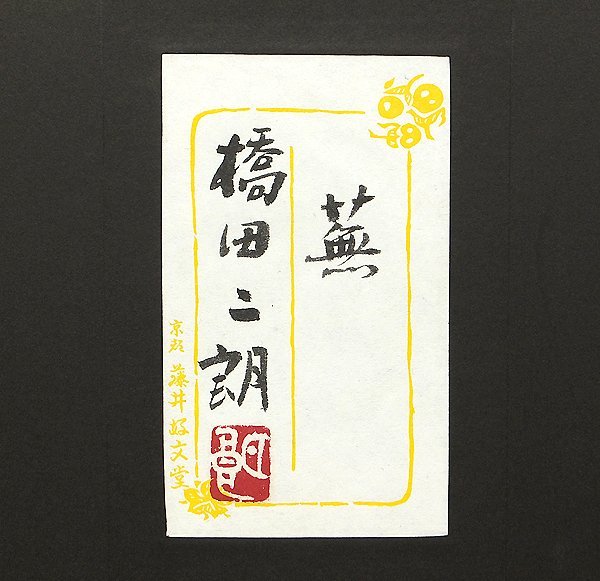 蕪
橋田二朗
京都 藤井好文堂